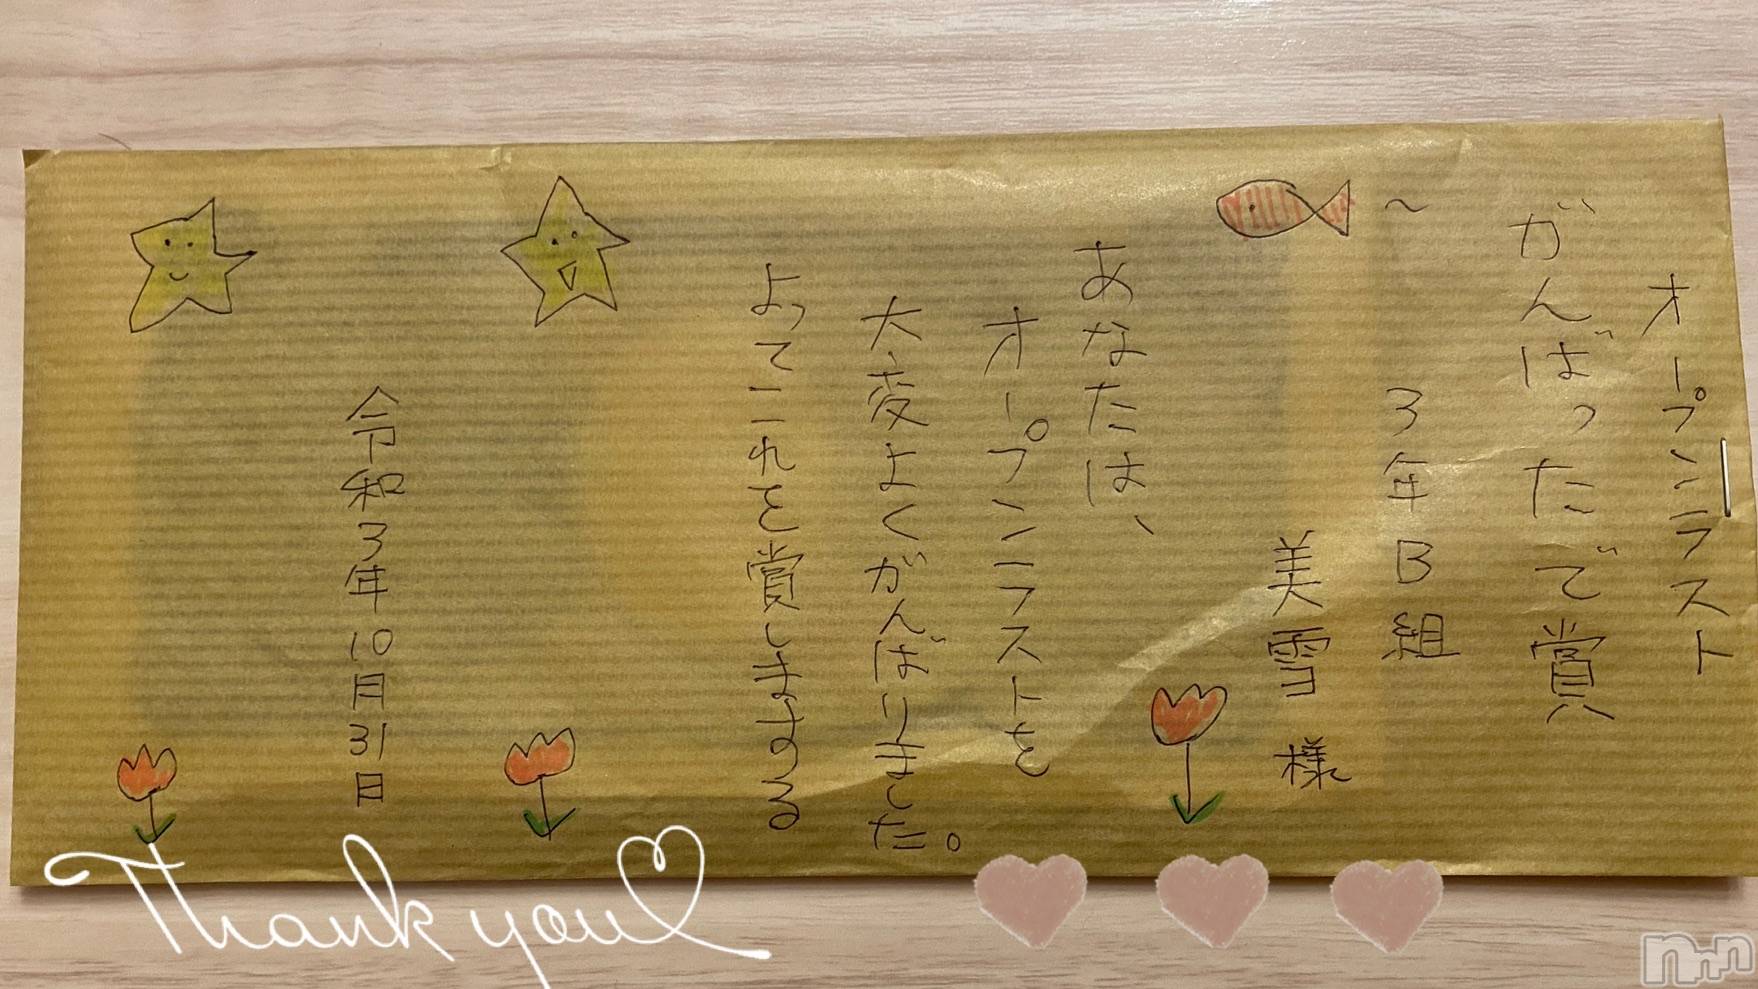 オープンラスト
がんばったで賞
〜
3年B組
美雪 様
あなたは、
オープンラストを
大変よくがんばりました。
よってこれを賞しまする
令和3年10月31日
Thank you
nnn